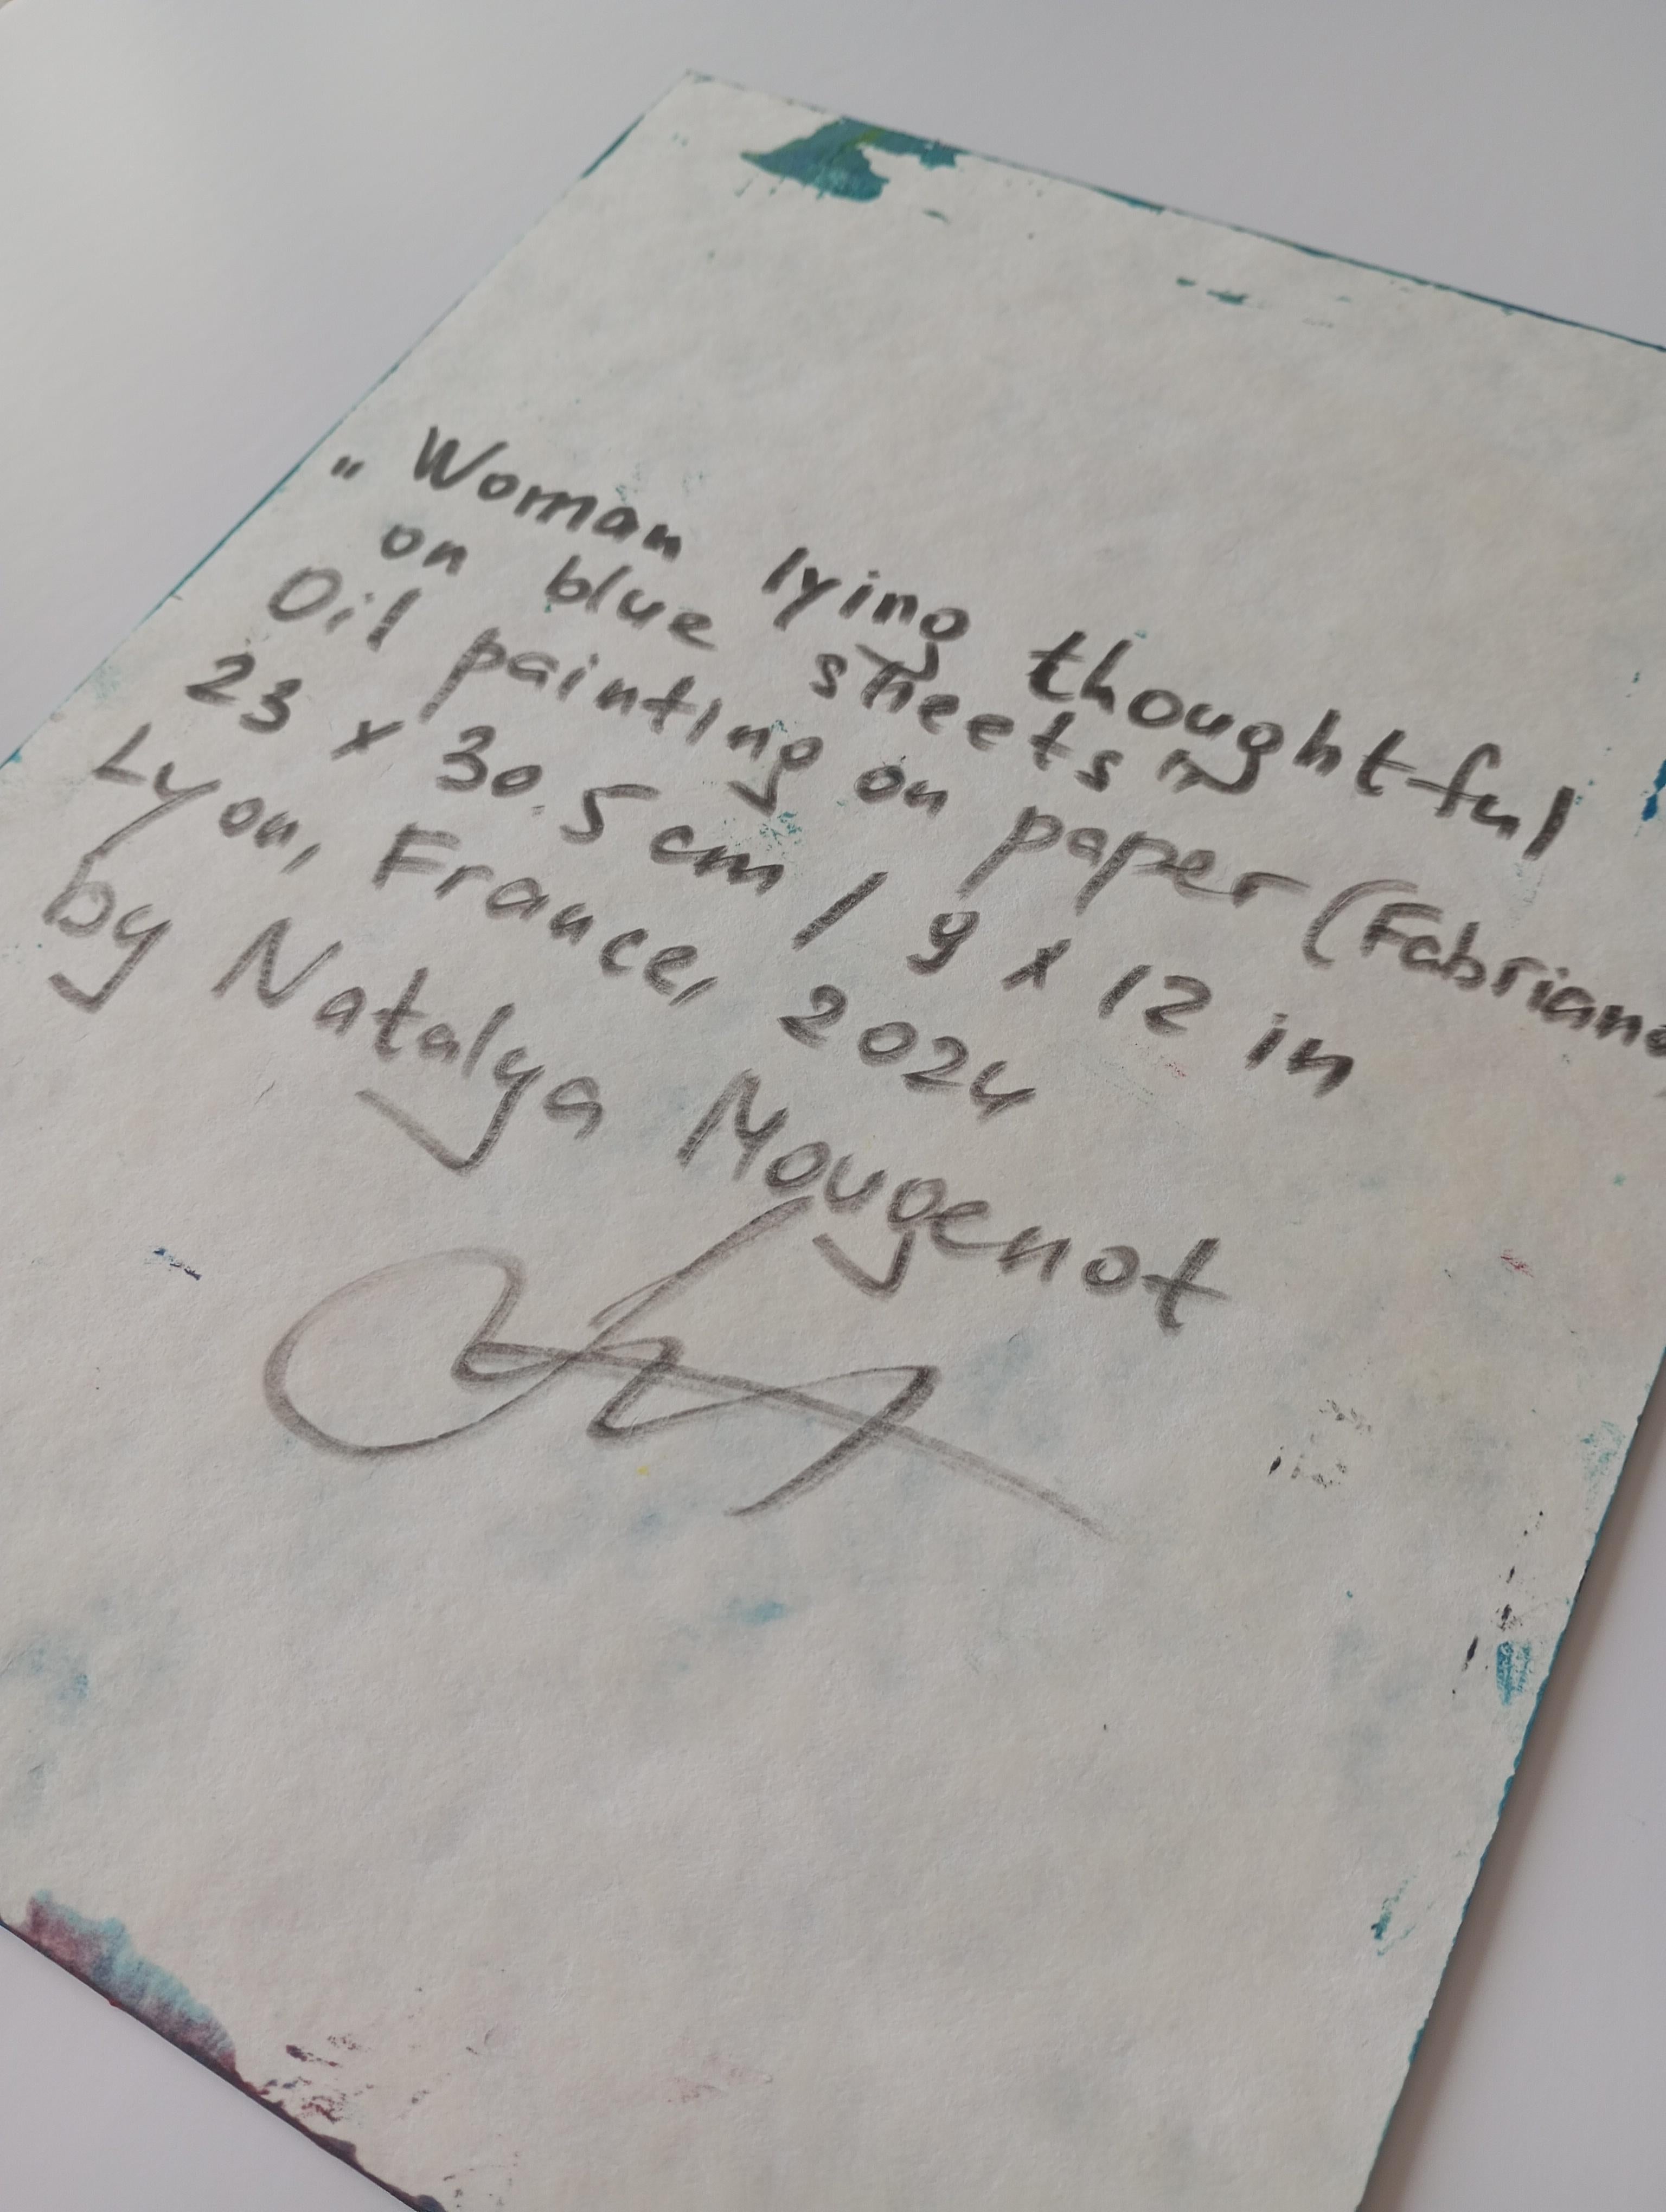 " Woman lying thoughtful
on blue sheets "
Oil painting on paper (Fabriano)
23 x 30.5 cm / 9 x 12 in
Lyon, France, 2024
by Natalya Mougenot